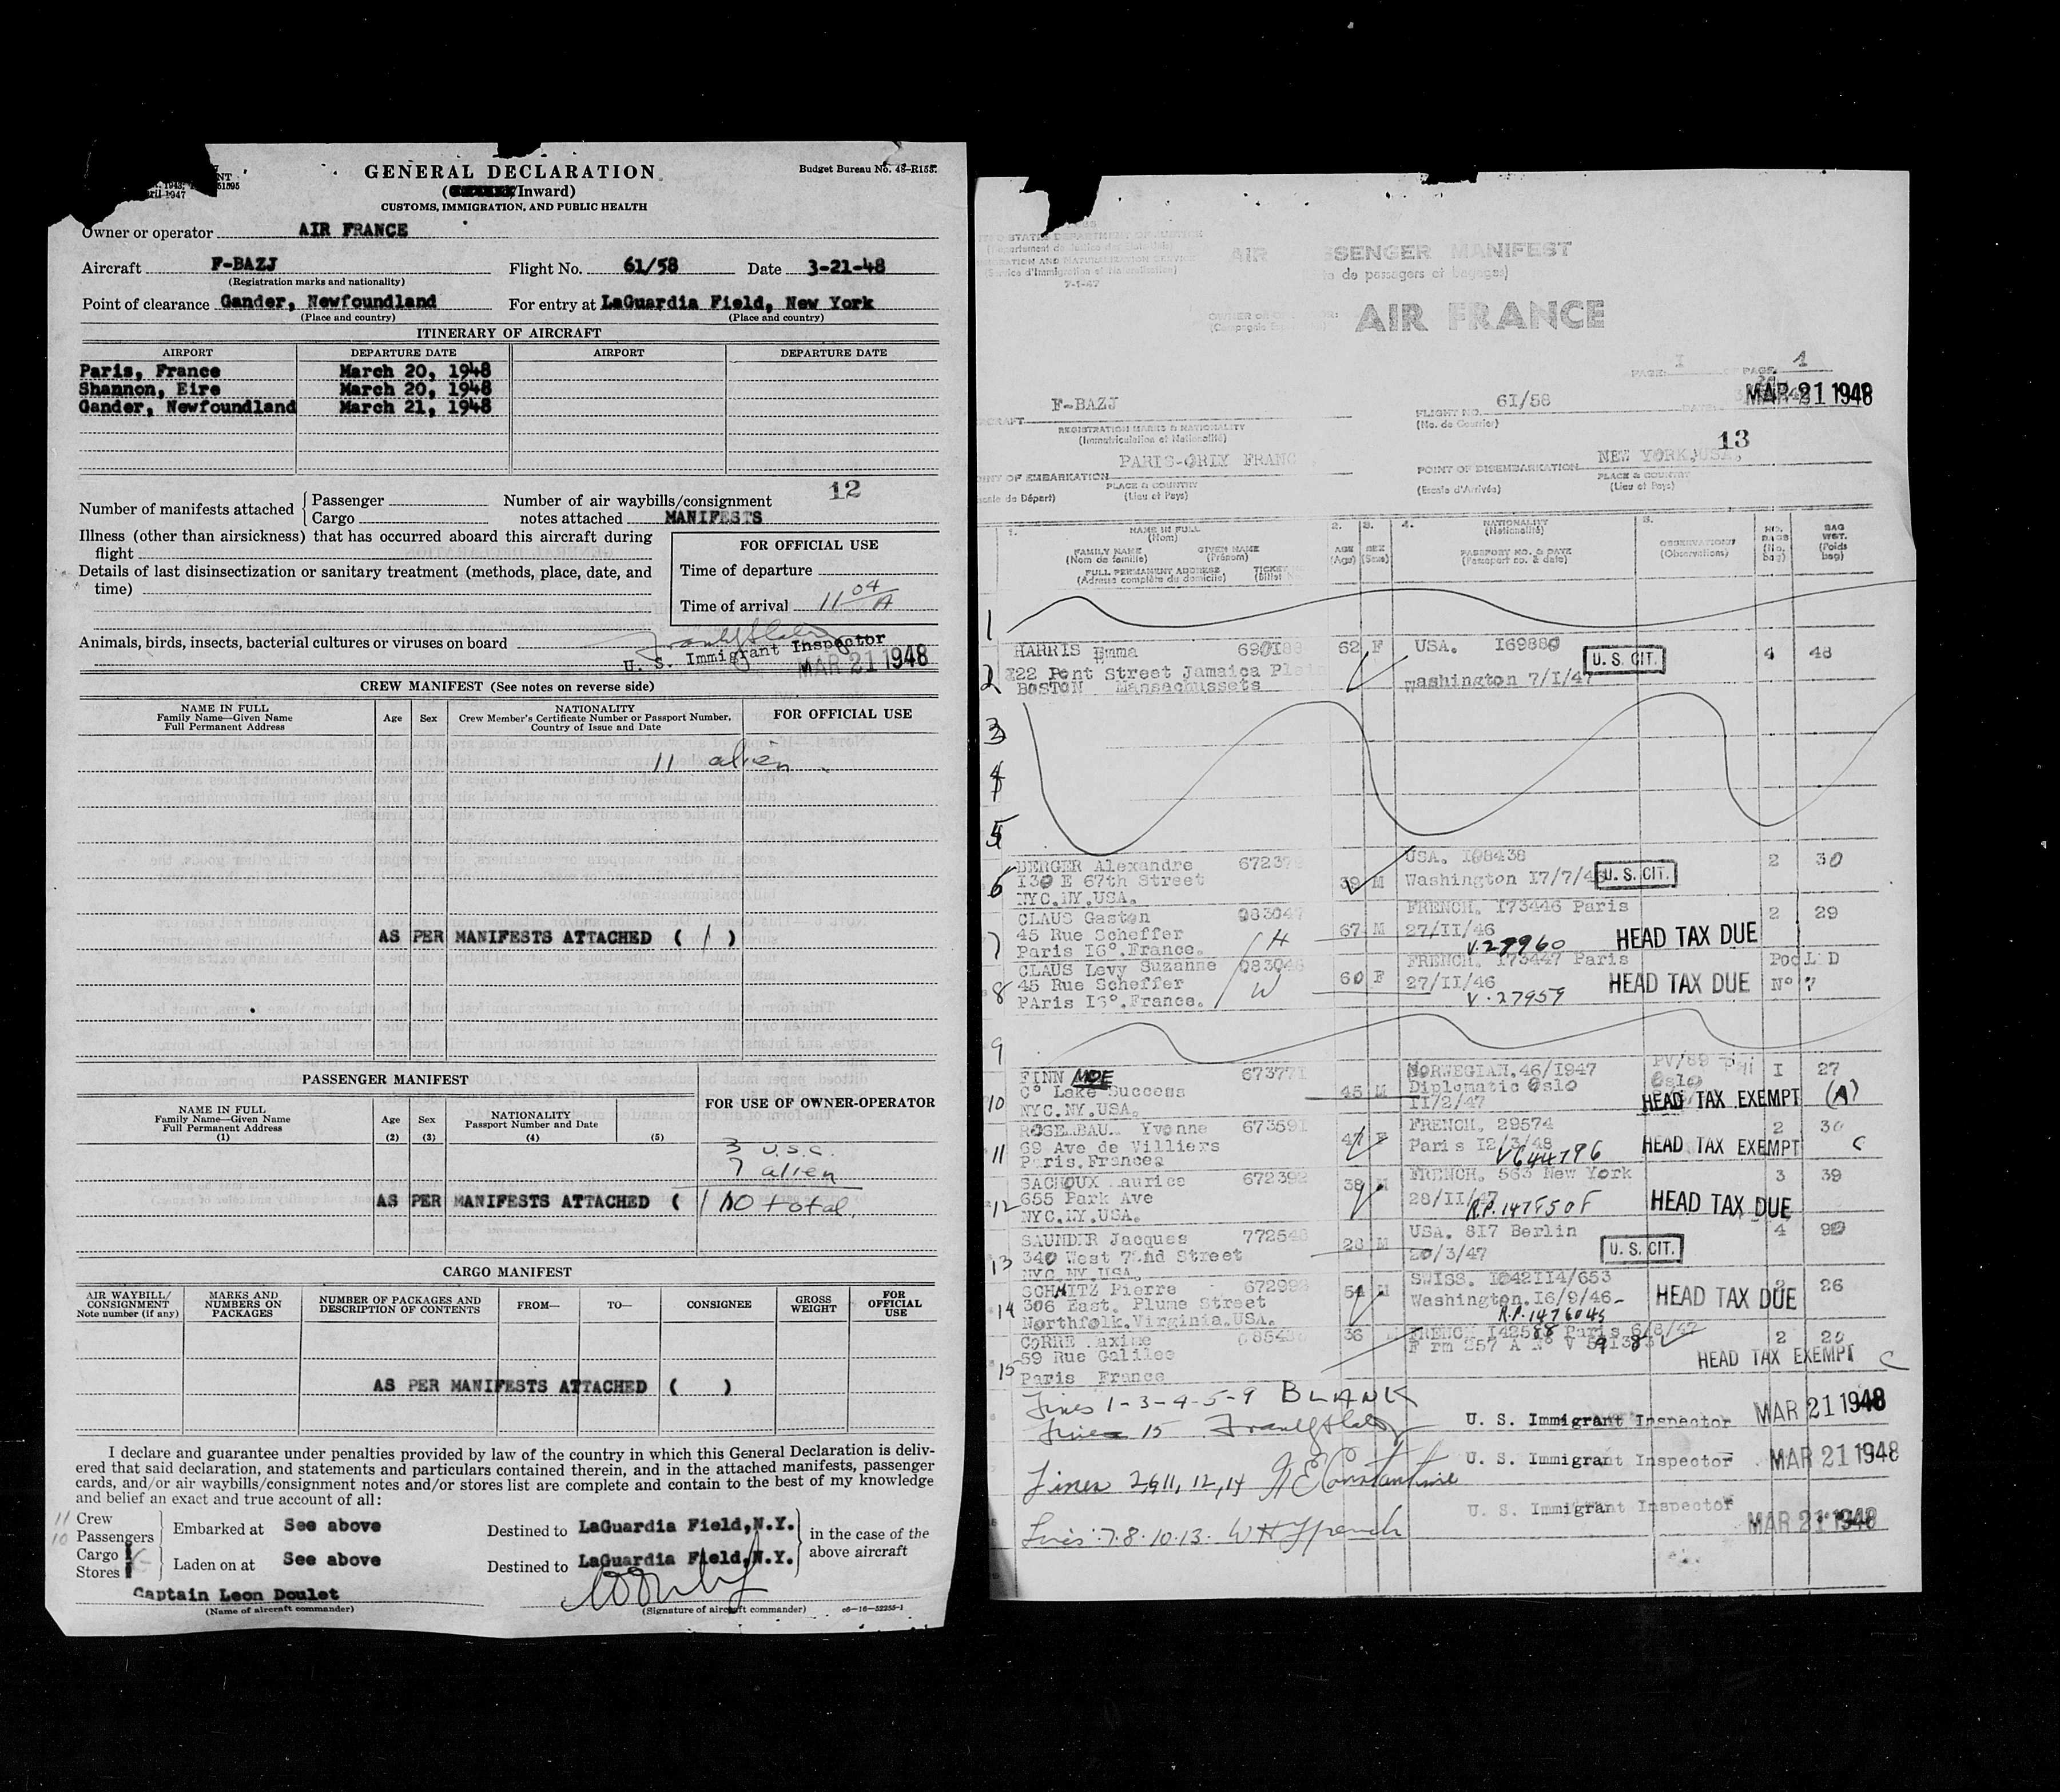 GENERAL DECLARATION
Budget Bureau No. 48-R155.
Inward)
CUSTOMS, IMMIGRATION, AND PUBLIC HEALTH
Owner or operator AIR FRANCE
Aircraft F-BAZJ Flight No. 61/58 Date 3-21-48
(Registration marks and nationality)
Point of clearance Gander, Newfoundland For entry at LaGuardia Field, New York
(Place and country) (Place and country)
ITINERARY OF AIRCRAFT
AIRPORT DEPARTURE DATE AIRPORT DEPARTURE DATE
Paris, France March 20, 1948
Shannon, Eire March 20, 1948
Gander, Newfoundland March 21, 1948
12
Number of manifests attached Passenger Cargo
Number of air waybills/consignment
notes attached MANIFESTS
Illness (other than airsickness) that has occurred aboard this aircraft during
flight
Details of last disinsectization or sanitary treatment (methods, place, date, and
time)
FOR OFFICIAL USE
Time of departure
Time of arrival 11 04 A
Animals, birds, insects, bacterial cultures or viruses on board
U. S. Immigrant Inspector
MAR 21 1948
CREW MANIFEST (See notes on reverse side)
NAME IN FULL
Family Name—Given Name
Full Permanent Address
Age Sex
NATIONALITY
Crew Member's Certificate Number or Passport Number,
Country of Issue and Date
FOR OFFICIAL USE
11 alien
AS PER MANIFESTS ATTACHED ( 1 )
PASSENGER MANIFEST
FOR USE OF OWNER-OPERATOR
NAME IN FULL
Family Name—Given Name
Full Permanent Address
(1)
Age
(2)
Sex
(3)
NATIONALITY
Passport Number and Date
(4)
(5)
3 U.S.C.
7 alien
AS PER MANIFESTS ATTACHED ( 1
10 total
CARGO MANIFEST
AIR WAYBILL/
CONSIGNMENT
Note number (if any)
MARKS AND
NUMBERS ON
PACKAGES
NUMBER OF PACKAGES AND
DESCRIPTION OF CONTENTS
FROM— TO— CONSIGNEE
GROSS
WEIGHT
FOR
OFFICIAL
USE
AS PER MANIFESTS ATTACHED ( )
I declare and guarantee under penalties provided by law of the country in which this General Declaration is deliv-
ered that said declaration, and statements and particulars contained therein, and in the attached manifests, passenger
cards, and/or air waybills/consignment notes and/or stores list are complete and contain to the best of my knowledge
and belief an exact and true account of all:
11 Crew
10 Passengers
Embarked at See above Destined to LaGuardia Field,N.Y.
Cargo
Stores
Laden on at See above Destined to LaGuardia Field,N.Y.
in the case of the
above aircraft
Captain Leon Doulet
(Name of aircraft commander) (Signature of aircraft commander) c6—16—52255-1
AIR SSENGER MANIFEST
de passagers et bagages)
7-1-47
AIR FRANCE
PAGE: I OF PAGE 1
MAR 21 1948
F-BAZJ
FLIGHT NO. 61/58
(No. de Courrier)
REGISTRATION MARKS & NATIONALITY
(Immatriculation et Nationalité)
13
PARIS-ORLY FRANC
POINT OF DISEMBARKATION NEW YORK,USA,
PLACE & COUNTRY
(Lieu et Pays)
(Escale d'Arrivée)
PLACE & COUNTRY
(Lieu et Pays)
1. NAME IN FULL
(Nom)
FAMILY NAME GIVEN NAME
(Nom de famille) (Prénom)
FULL PERMANENT ADDRESS
(Adresse complète du domicile)
2. AGE (Age)
3. SEX (Sexe)
4. NATIONALITY
(Nationalité)
PASSPORT NO. & DATE
(Passeport no. & date)
5. OBSERVATIONS
(Observations)
NO. BAGS (No. bag)
BAG WGT. (Poids bag)
1
2 HARRIS Emma 62 F USA. I69880 U. S. CIT. 4 48
Street Jamaica
BOSTON Massachussets
Washington 7/I/47
3
4
5
6 BERGER Alexandre 39 M USA. I08438 2 30
I30 E 67th Street Washington U. S. CIT.
NYC.NY.USA.
7 CLAUS Gaston 67 M FRENCH. I73446 Paris 2 29
45 Rue Scheffer 27/II/46
Paris I6°.France. H V.27960 HEAD TAX DUE
8 CLAUS Levy Suzanne 60 F FRENCH. I73447 Paris
45 Rue Scheffer 27/II/46 HEAD TAX DUE N° 7
PAris I6°.France. W V.27959
9
10 FINN MOE 45 M NORWEGIAN.46/1947 Oslo I 27
C° Lake Success Diplomatic Oslo
NYC.NY.USA. II/2/47 HEAD TAX EXEMPT (A)
11 Yvonne FRENCH. 29574 2 30
69 Ave de Villiers Paris I2/3/48 HEAD TAX EXEMPT C
Paris.France
12 SACHOUX aurice 38 M FRENCH. 563 New York 3 39
655 Park Ave
NYC.NY.USA. HEAD TAX DUE
13 SAUNDER Jacques 28 M USA. 817 Berlin 4 90
340 West 72nd Street 20/3/47 U. S. CIT.
NYC NY USA.
14 SCHMITZ Pierre 54 M SWISS. 26
306 East. Plume Street Washington.I6/9/46
Northfolk.Virginia.USA. HEAD TAX DUE
15 CORRE axime 36 2
59 Rue Galilee
Paris France HEAD TAX EXEMPT C
Lines 1-3-4-5-9 BLANK
Line 15
U. S. Immigrant Inspector MAR 21 1948
Lines 2,6,11,12,14
U. S. Immigrant Inspector MAR 21 1948
Lines 7.8.10.13. W H French
U. S. Immigrant Inspector MAR 21 1948